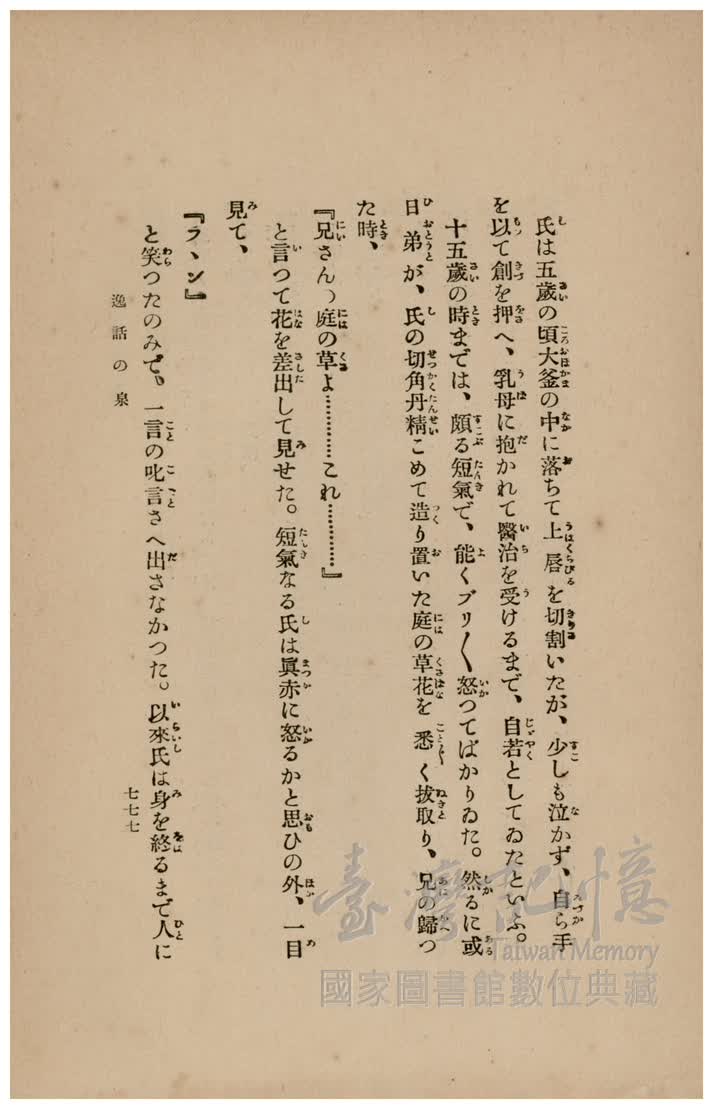 氏は五歲の頃大釜の中に落ちて上唇を切割いたが、少しも泣かず、自ら手
を以て創を押へ、乳母に抱かれて醫治を受けるまで、自若としてゐたといふ。
十五歲の時までは、頗る短氣で、能くブリ〱怒つてばかりゐた。然るに或
日弟が、氏の切角丹精こめて造り置いた庭の草花を悉く拔取り、兄の歸つ
た時、
『兄さん、庭の草よ…………これ…………』
と言つて花を差出して見せた。短氣なる氏は眞赤に怒るかと思ひの外、一目
見て、
『ラヽン』
と笑つたのみで、一言の叱言さへ出さなかつた。以來氏は身を終るまで人に
逸話の泉
七七七
臺灣記憶
Taiwan Memory
國家圖書館數位典藏